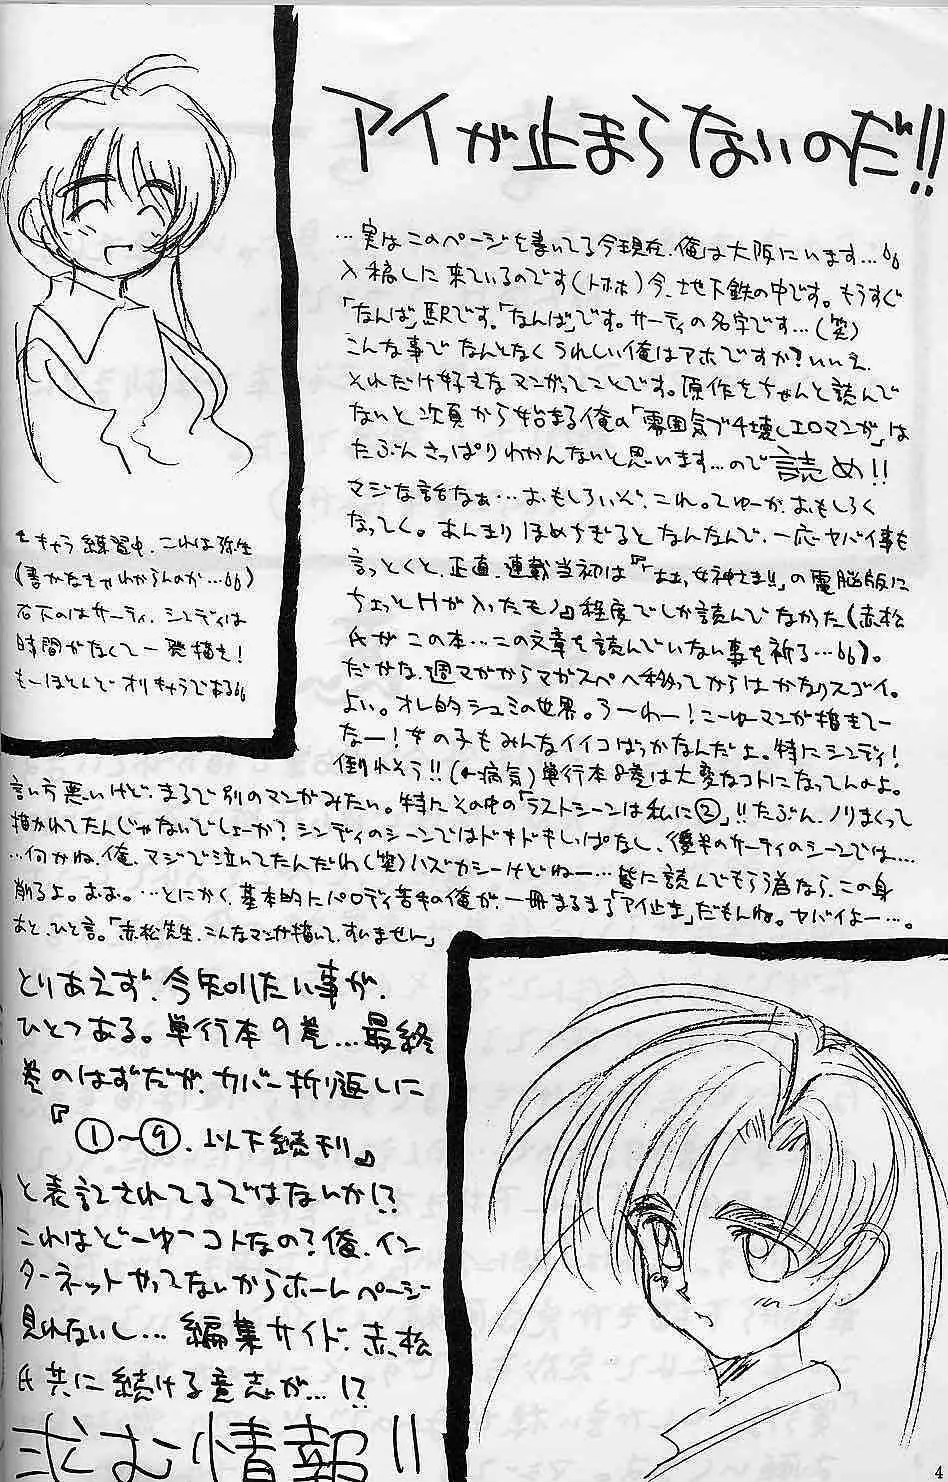 アイが止まらないのだ!!
…実はこのページを書いてる今現在、俺は大阪にいます…66
入稿しに来ているのです(トホホ)今、地下鉄の中です。もうすぐ
「なんば」駅です。「なんば」です。サーティの名字です…(笑)
こんな事でなんとなくうれしい俺はアホですか?いいえ、
それだけ好きなマンガってことです。原作をちゃんと読んで
ないと次頁から始まる俺の「雰囲気ブチ壊しエロマンガ」は
たぶんさっぱりわかんないと思います…ので読め!!
マジな話なぁ…おもしろいぞ、これ。てゆーか、おもしろく
なってく。あんまりほめちぎるとなんなんで、一応ヤバイ事も
言っとくと、正直、連載当初は『「ああっ女神さまっ!!」の電脳版に
ちょっとHが入ったモノ』程度でしか読んでなかった(赤松
氏がこの本…この文章を読んでいない事を祈る…66)。
だがな、週マガからマガスペへ移ってからはかなりスゴイ。
よい。オレ的シュミの世界。うーわー!こーゆーマンガ描きてー
なー!女の子もみんなイイコばっかなんだよ。特にシンディ!
倒れそう!!(←病気)単行本8巻は大変なコトになってんのよ。
言い方悪いけど、まるで別のマンガみたい。特にその中の「ラストシーンは私に②」!!たぶん、ノリまくって
描かれてたんじゃないでしょーか?シンディのシーンではドキドキしっぱなし、後半のサーティのシーンでは…
…何かね、俺、マジで泣いてたんだわ(笑)ハズカシーけどねー…皆に読んでもらう為なら、この身
削るよ。おお。…とにかく、基本的にパロディ苦手の俺が、一冊まるまる「アイ止ま」だもんね。ヤバイよー…。
あと、ひと言。「赤松先生、こんなマンガ描いて、すいません」
キャラ練習中、これは弥生
(書かなきゃわからんのか…66)
右下のはサーティ、シンディは
時間がなくて一発描き!
もーほとんどオリキャラである66
とりあえず、今知りたい事が、
ひとつある。単行本9巻…最終
巻のはずだが、カバー折り返しに
『①〜⑨、以下続刊』
と表記されてるではないか!?
これはどーゆーコトなの?俺、イン
ターネットやってないからホームページ
見れないし…編集サイド、赤松
氏共に続ける意志が…!?
求む情報!!
4